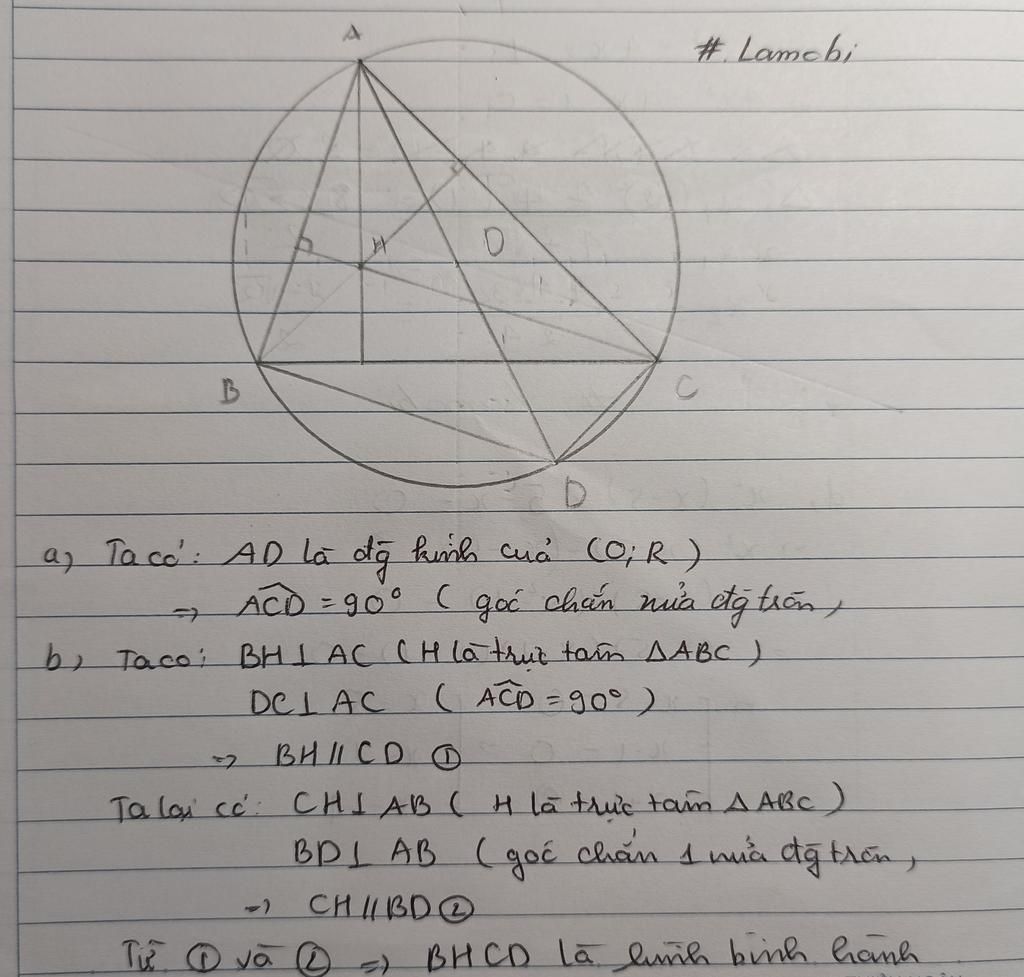 # Lamchi
A
H
O
B
C
D
a, Ta có: AD là đg kính của (O; R)
=> ACD = 90° ( góc chắn nửa đg tròn,
b, Ta có: BH ⊥ AC ( H là trực tâm ΔABC )
DC ⊥ AC ( ACD = 90° )
=> BH // CD ①
Ta lại có: CH ⊥ AB ( H là trực tâm Δ ABC )
BD ⊥ AB ( góc chắn 1 nửa đg tròn,
=> CH // BD ②
Từ ① và ② => BHCD là hình bình hành